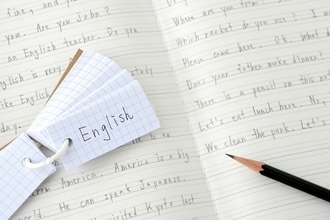 fine, and you.
you. Are you English?
an English teacher. Do you
English is very
like English
today
America. America is a big
He can speak Japanese.
visited Kyoto last
English
Where are you from
Which market do you use? I
Please come here. Ok. What do
Does your father make dinner?
There is a pencil on this
Let's eat lunch here. No,
We clean the park. Let's